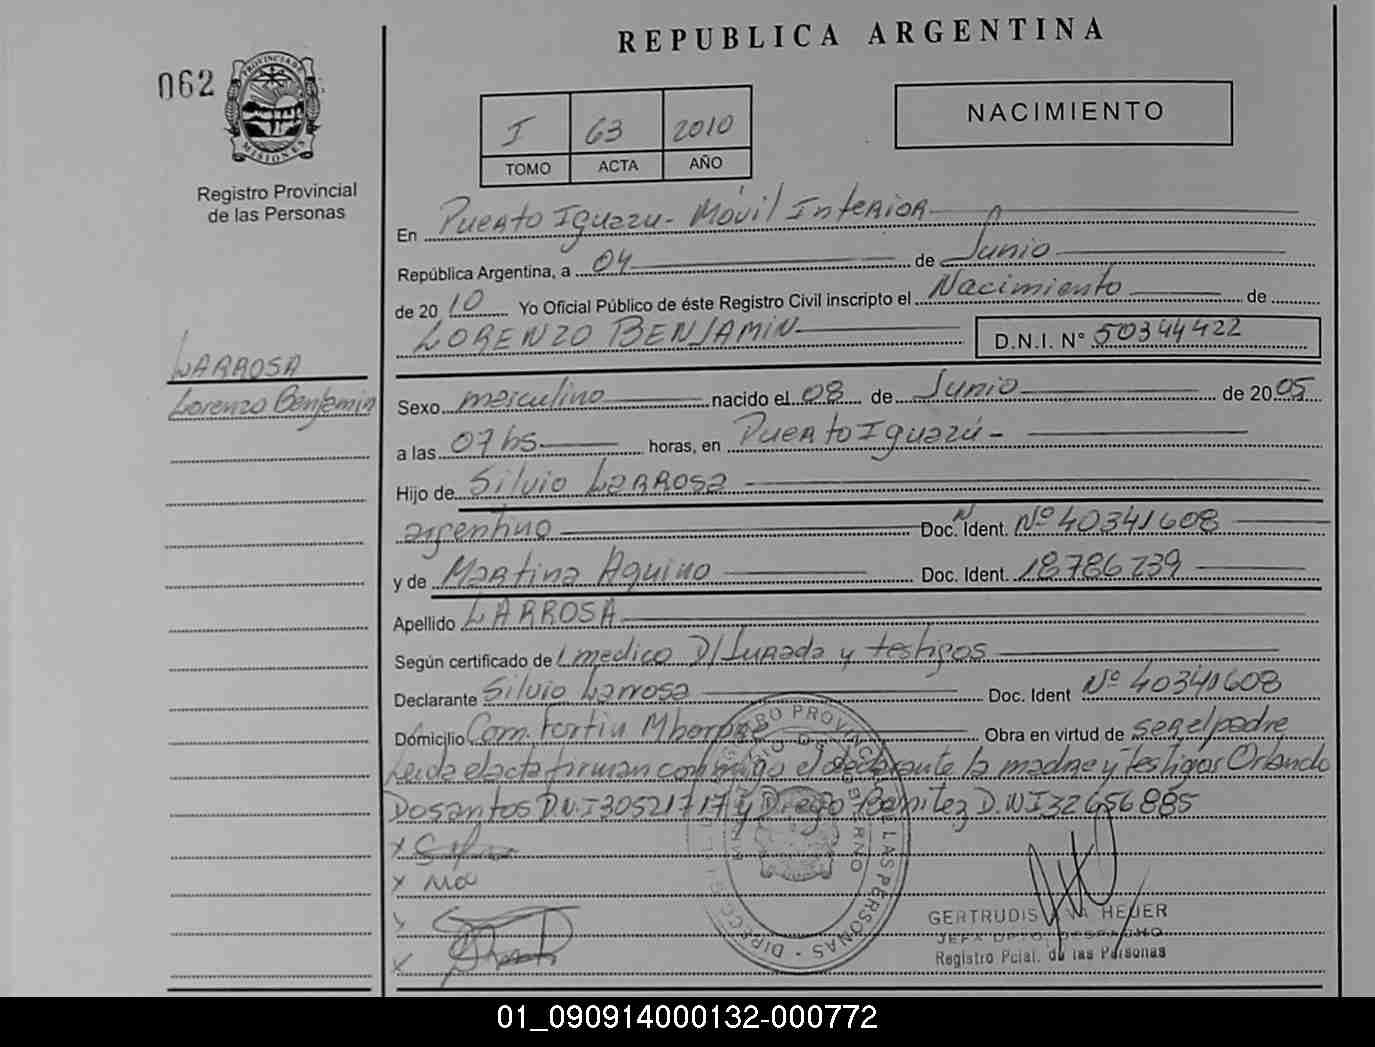 REPUBLICA ARGENTINA
062
PROVINCIA DE
MISIONES
Registro Provincial
de las Personas
I 63 2010
TOMO ACTA AÑO
NACIMIENTO
En Puerto Iguazu - Móvil Interior
República Argentina, a 04 de Junio
de 2010 Yo Oficial Público de éste Registro Civil inscripto el Nacimiento de
LORENZO BENJAMIN D.N.I. N° 50344422
LARROSA
Lorenzo Benjamin
Sexo masculino nacido el 08 de Junio de 2005
a las 07 hs horas, en Puerto Iguazú -
Hijo de Silvio Larrosa
argentino Doc. Ident. Nº 40341608
y de Martina Aquino Doc. Ident. 18786239
Apellido LARROSA
Según certificado de medico D/Jurada y testigos
Declarante Silvio Larrosa Doc. Ident Nº 40341608
Domicilio Com. Fortin Mbororé Obra en virtud de ser el padre
Leida el acta firman conmigo el declarante la madre y testigos Orlando
Dosantos D.N.I 30521717 y Diego Benitez D.N.I 32656885
x
x Ma
x
x
GERTRUDIS HEUER
JEFA DPTO. DESPACHO
Registro Pcial. de las Personas
01_090914000132-000772